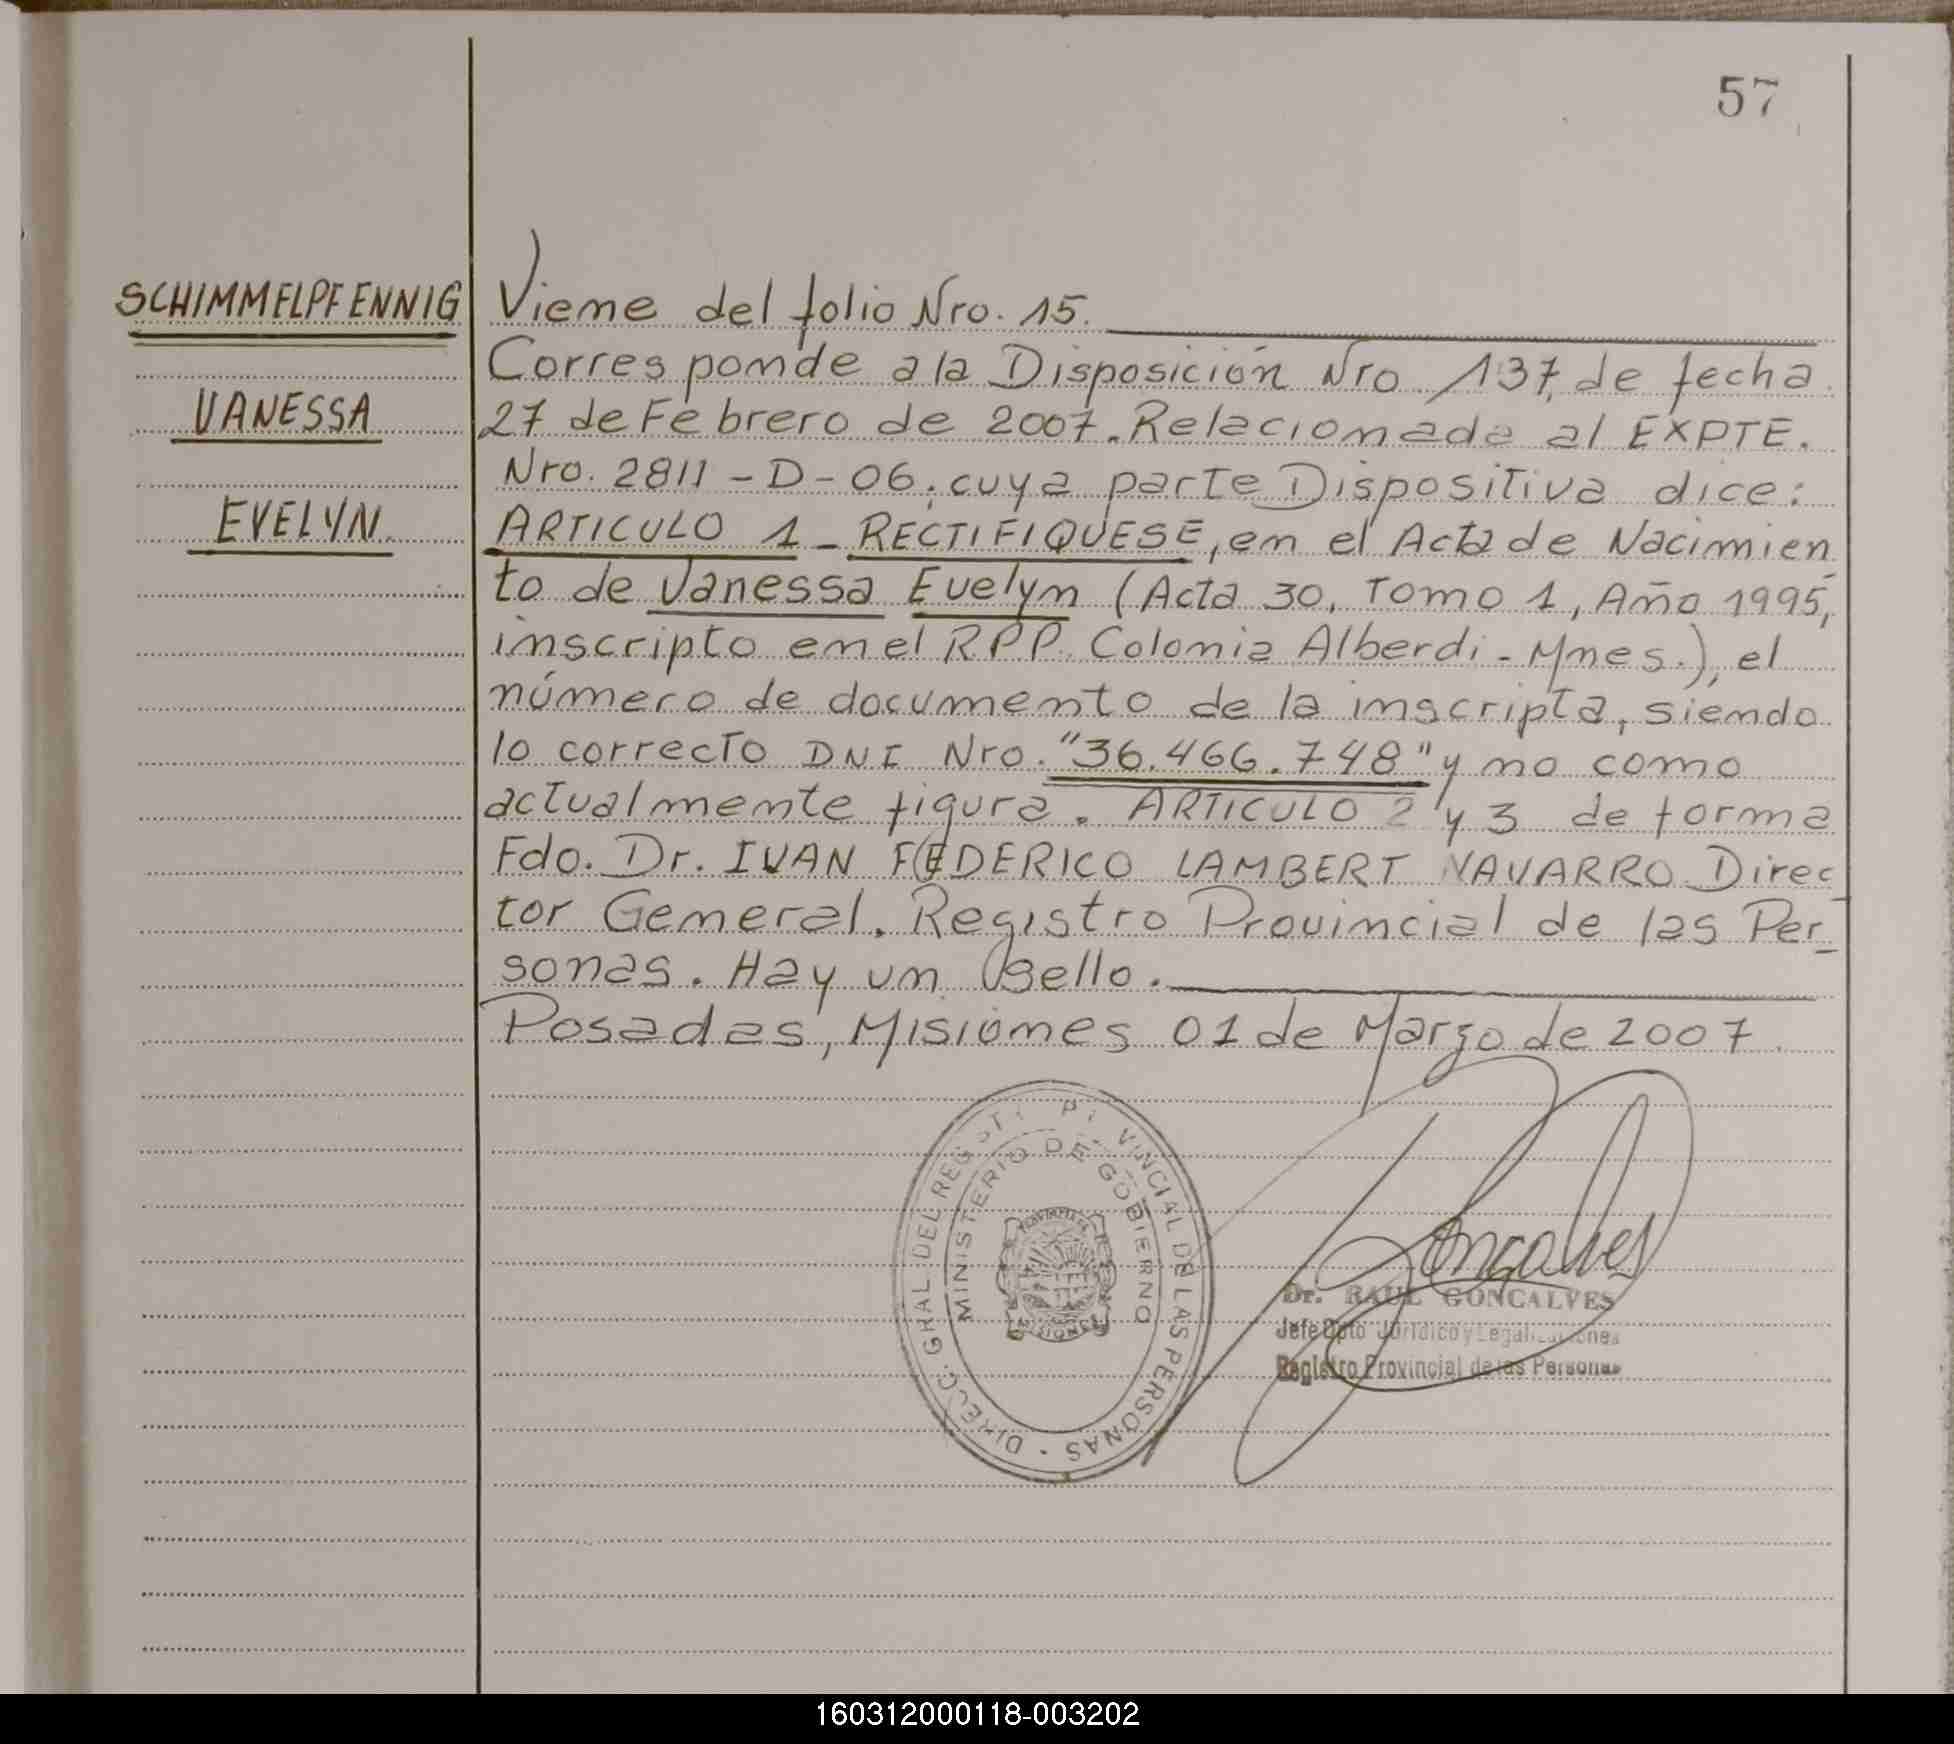 57
SCHIMMELPFENNIG
VANESSA
EVELYN
Viene del folio Nro. 15.
Corresponde a la Disposición Nro 137, de fecha
27 de Febrero de 2007. Relacionada al EXPTE.
Nro. 2811 - D - 06, cuya parte Dispositiva dice:
ARTICULO 1 - RECTIFIQUESE, en el Acta de Nacimien
to de Vanessa Evelyn (Acta 30, Tomo 1, Año 1995,
inscripto en el RPP. Colonia Alberdi - Mnes.), el
número de documento de la inscripta, siendo
lo correcto DNI Nro. "36.466.748" y no como
actualmente figura. ARTICULO 2 y 3 de forma
Fdo. Dr. IVAN FEDERICO LAMBERT NAVARRO Direc
tor General. Registro Provincial de las Per-
sonas. Hay un Sello.
Posadas, Misiones 01 de Marzo de 2007.
DIRECC. GRAL. DEL REGISTR PR VINCIAL DE LAS PERSONAS
MINISTERIO DE GOBIERNO
MISIONES
Goncalves
Dr. RAUL GONCALVES
Jefe Dpto Jurídico y Legalizaciones
Registro Provincial de las Personas
160312000118-003202